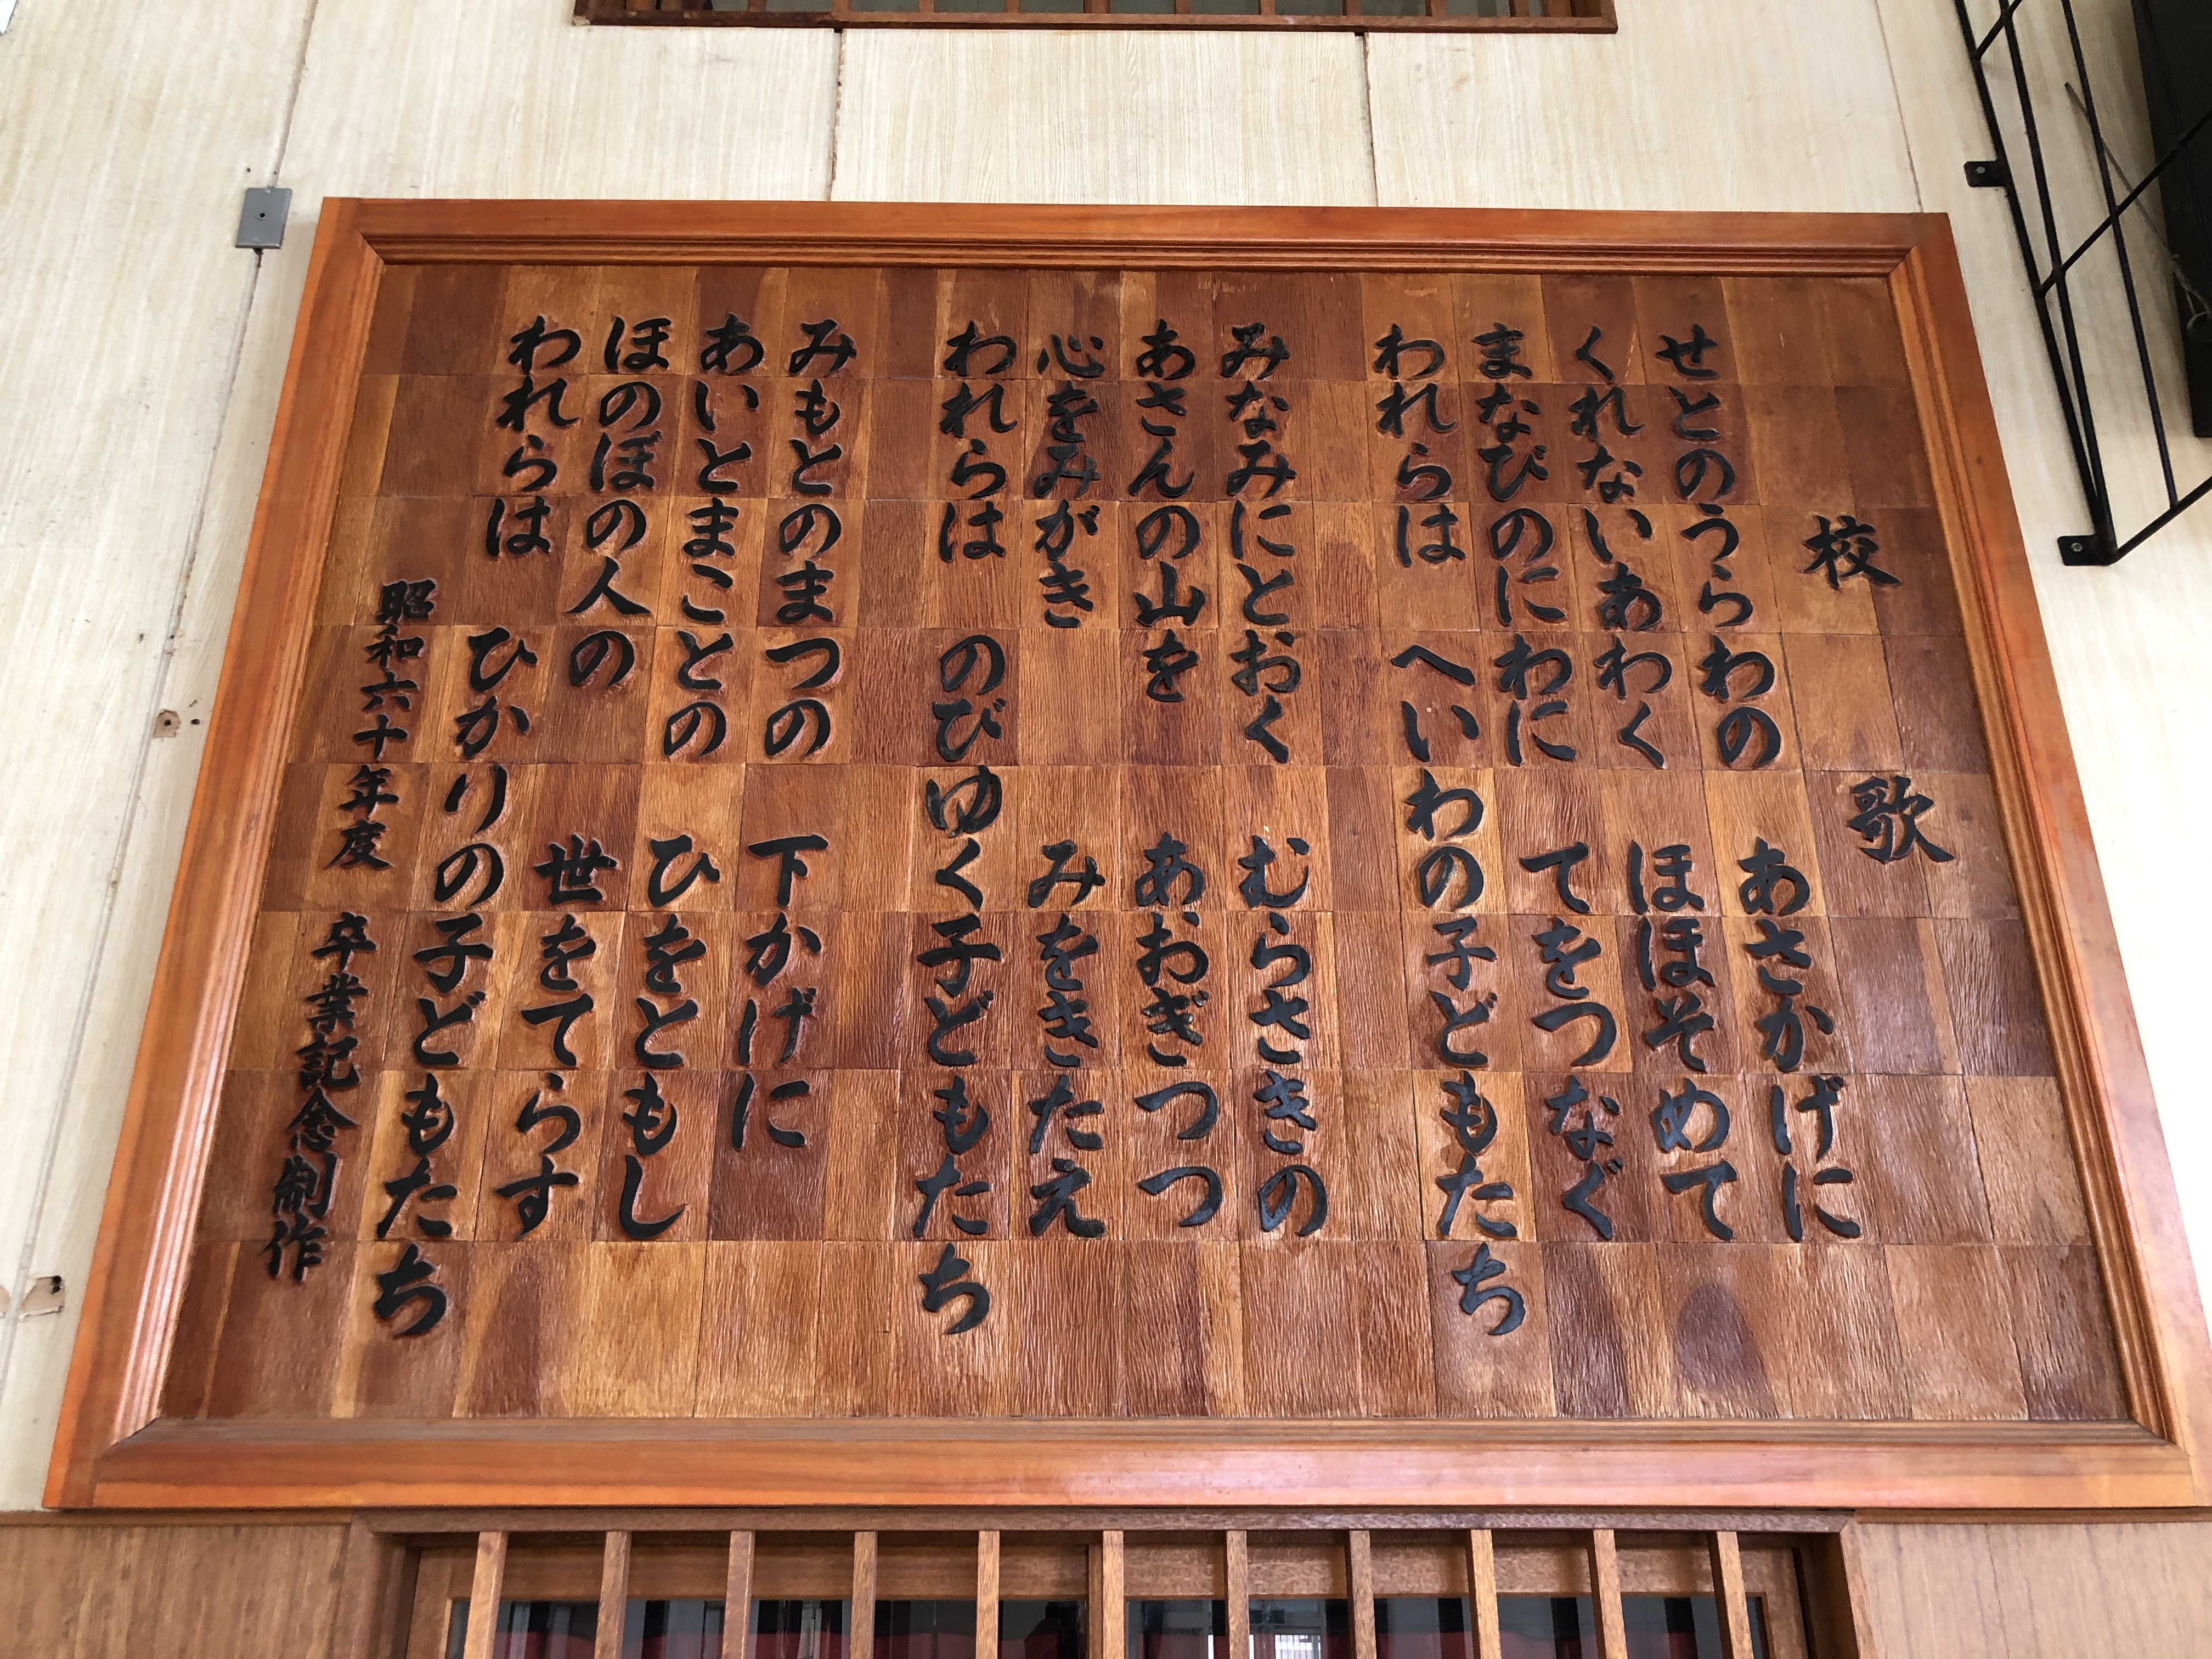 校 歌
せとのうらわの あさかげに
くれないあわく ほほそめて
まなびのにわに てをつなぐ
われらは へいわの子どもたち
みなみにとおく むらさきの
あさんの山を あおぎつつ
心をみがき みをきたえ
われらは のびゆく子どもたち
みもとのまつの 下かげに
あいとまことの ひをともし
ほのぼの人の 世をてらす
われらは ひかりの子どもたち
昭和六十年度 卒業記念制作